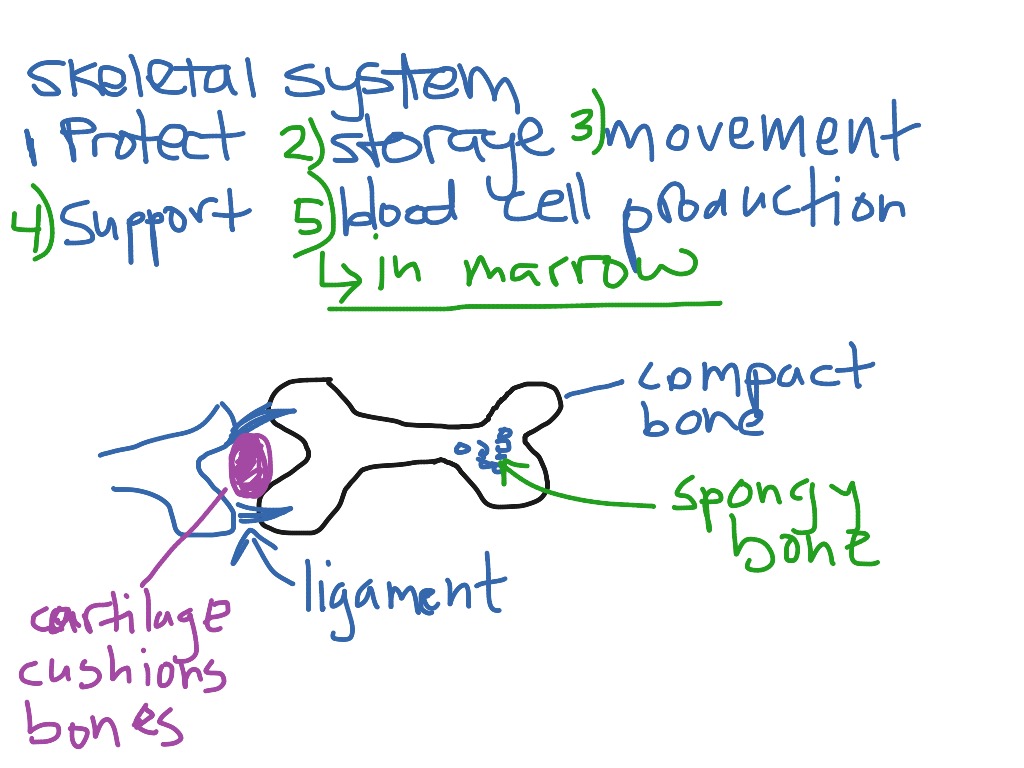 skeletal system
1 Protect 2) storage 3) movement
4) Support 5) blood cell production
↳ in marrow
compact
bone
spongy
bone
ligament
cartilage
cushions
bones